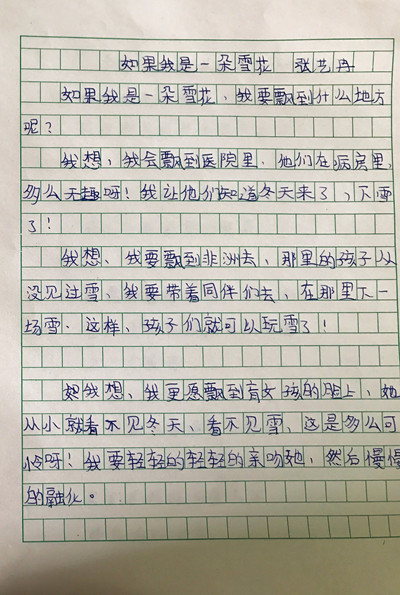 如果我是一朵雪花 张艺丹
如果我是一朵雪花、我要飘到什么地方
呢?
我想、我会飘到医院里、他们在病房里、
多么无趣呀!我让他们知道冬天来了,下雪
了!
我想、我要飘到非洲去、那里的孩子从
没见过雪、我要带着同伴们去、在那里下一
场雪、这样、孩子们就可以玩雪了!
我想、我更愿飘到盲女孩的脸上、她
从小就看不见冬天、看不见雪、这是多么可
怜呀!我要轻轻的轻轻的亲吻她、然后慢慢
的融化。